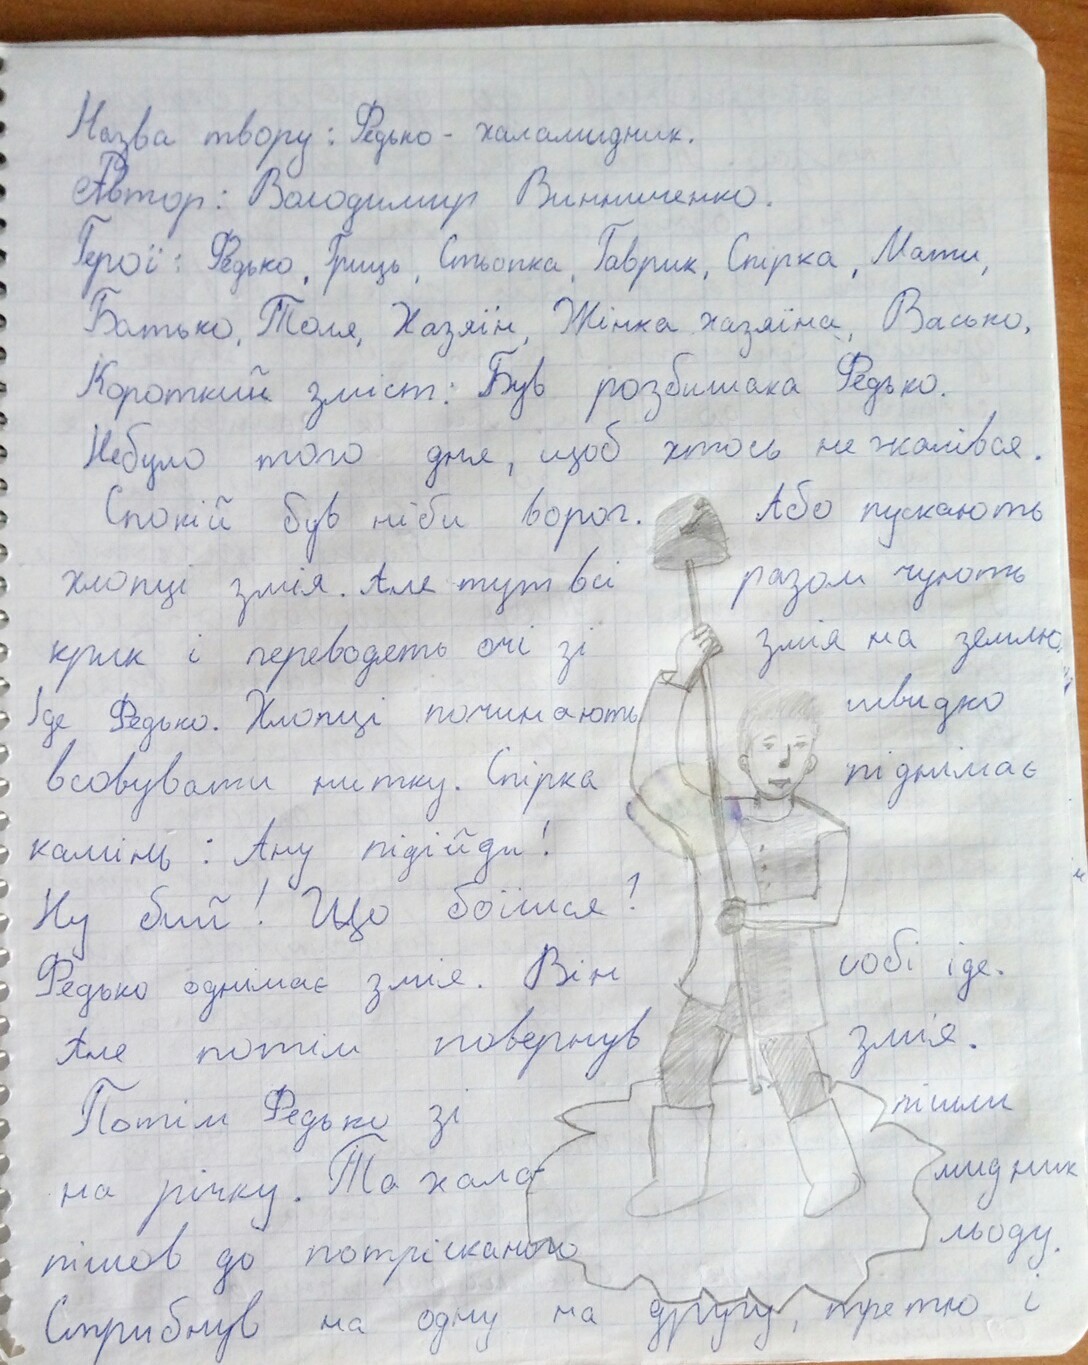 Назва твору: Федько - халамидник.
Автор: Володимир Винниченко.
Герої: Федько, Гриць, Стьопка, Гаврик, Спірка, Мати,
Батько, Толя, Хазяїн, Жінка хазяїна, Васько,
Короткий зміст: Був розбишака Федько.
Небуло того дня, щоб хтось не жалівся.
Спокій був ніби ворог. Або пускають
хлопці змія. Але тут всі разом чують
крик і переводять очі зі змія на землю.
Іде Федько. Хлопці починають швидко
всовувати нитку. Спірка піднімає
камінь: Ану підійди!
Ну бий! Що боїшся?
Федько однімає змія. Він собі іде.
Але потім повернув змія.
Потім Федько зі пішли
на річку. Та хала- мидник
пішов до потрісканого льоду.
Стрибнув на одну на другу, третю і